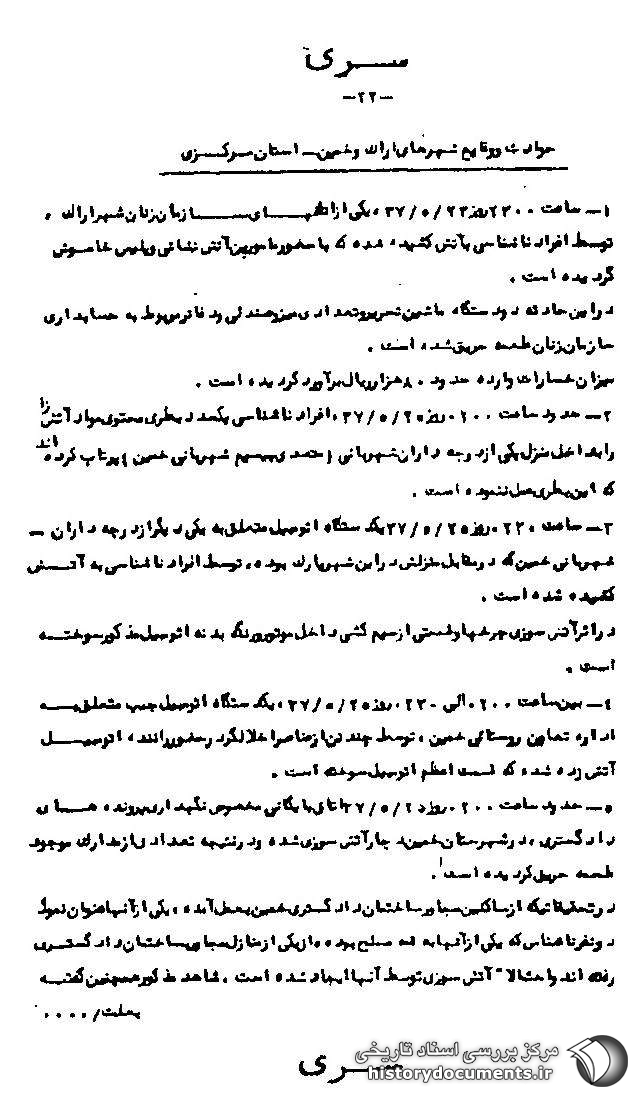 سری
-۲۲-
حوادث و وقایع شهرهای اراک و خمین - استان مرکزی
۱- ساعت ۲۳۰۰ روز ۳۷/۵/۲۳، یکی از اتاقهای سازمان زنان شهر اراک،
توسط افراد ناشناسی بآتش کشیده شده که با حضور مامورین آتش نشانی و پلیس خاموش
گردیده است.
در این حادثه دو دستگاه ماشین تحریر و تعدادی میز و صندلی و دفاتر مربوط به حسابداری
سازمان زنان طعمه حریق شده است.
میزان خسارات وارده حدود ۸۰۰ هزار ریال برآورد گردیده است.
۲- حدود ساعت ۰۱۰۰ روز ۳۷/۵/۲۵، افراد ناشناسی یکعدد بطری محتوی مواد آتش زا
را بداخل منزل یکی از درجه داران شهربانی (متصدی بیسیم شهربانی خمین) پرتاب کرده اند
که این بطری عمل ننموده است.
۳- ساعت ۰۲۲۰ روز ۳۷/۵/۲۵ یک دستگاه اتومبیل متعلق به یکی دیگر از درجه داران -
شهربانی خمین که در مقابل منزلش در این شهر پارک بوده، توسط افراد ناشناسی به آتش
کشیده شده است.
در اثر آتش سوزی چرخها و قسمتی از سیم کشی داخل موتور و رنگ بدنه اتومبیل مذکور سوخته
است.
۴- بین ساعت ۰۲۰۰ الی ۰۲۳۰ روز ۳۷/۵/۲۵، یک دستگاه اتومبیل جیپ متعلق به
اداره تعاون روستائی خمین، توسط چند تن از عناصر اخلالگر و حضور رانند، اتومبیل
آتش زده شده که قسمت اعظم اتومبیل سوخته است.
۵- حدود ساعت ۰۲۰۰ روز ۳۷/۵/۲۵ اتاق بایگانی مخصوص نگهداری پرونده های
دادگستری، در شهرستان خمین دچار آتش سوزی شده و در نتیجه تعدادی از مدارک موجود
طعمه حریق گردیده است.
در تحقیقاتیکه از ساکنین مجاور ساختمان دادگستری خمین بعمل آمده، یکی از آنها عنوان نمود
دو نفر ناشناس که یکی از آنها به قمه مسلح بوده، از یکی از منازل مجاور ساختمان دادگستری
رفته اند و احتمالا" آتش سوزی توسط آنها ایجاد شده است، شاهد مذکور همچنین گفته
بعلت/۰۰۰۰
سری
مرکز بررسی اسناد تاریخی
historydocuments.ir